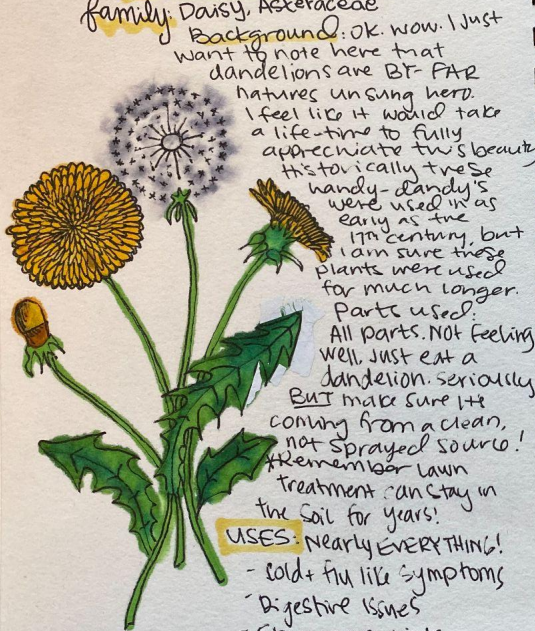 family: Daisy, Asteraceae
Background: OK. wow. I Just
want to note here that
dandelions are BY-FAR
natures unsung hero.
I feel like it would take
a life-time to fully
apprechiate this beauty
Historically these
handy-dandy's
were used in as
early as the
17th century, but
I am sure these
plants were used
for much longer.
Parts used:
All parts. Not feeling
well, Just eat a
dandelion. seriously
BUT make sure its
coming from a clean,
not sprayed source!
*Remember lawn
treatment can stay in
the soil for years!
USES: Nearly EVERYTHING!
- Cold + flu like symptoms
- Digestive Issues